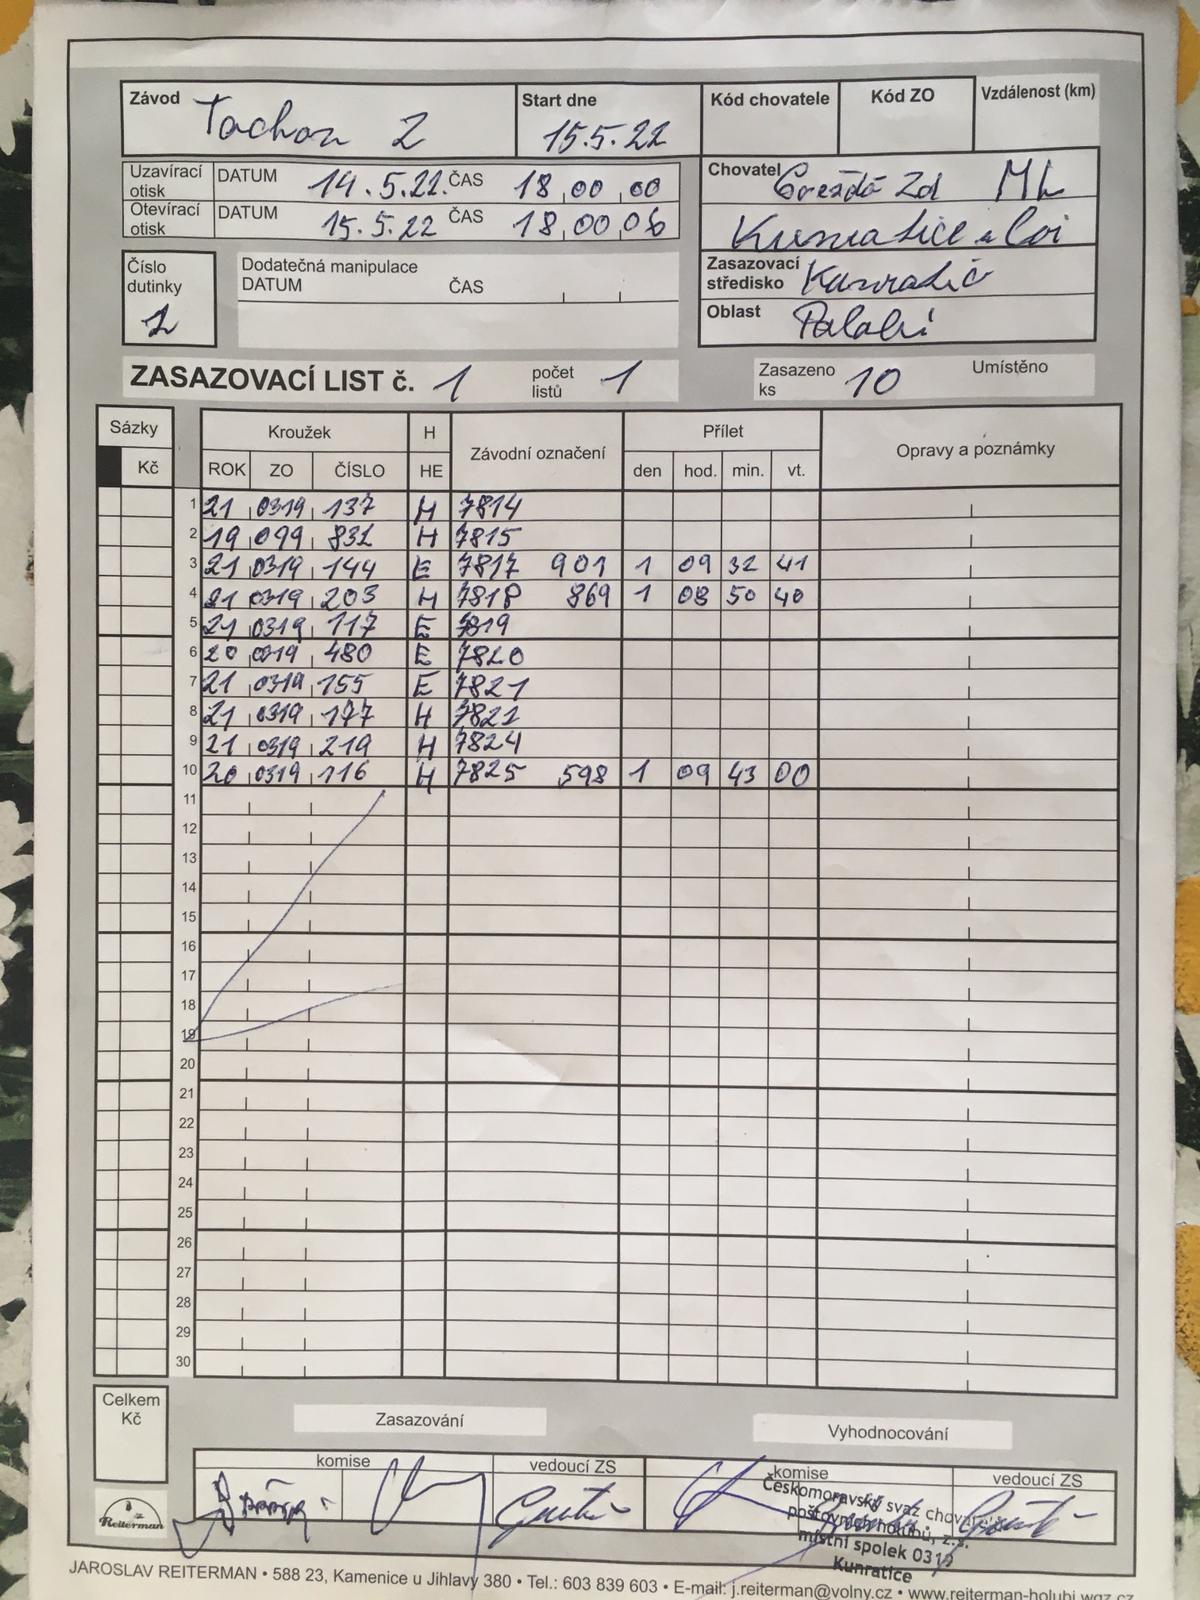 Závod Tachov 2 Start dne 15.5.22 Kód chovatele Kód ZO Vzdálenost (km)
Uzavírací otisk DATUM 14.5.22. ČAS 18 00 00
Otevírací otisk DATUM 15.5.22 ČAS 18 00 06
Chovatel Zd ML
Kunratice
Číslo dutinky 1
Dodatečná manipulace
DATUM ČAS
Zasazovací středisko Kunratic
Oblast
ZASAZOVACÍ LIST č. 1 počet listů 1 Zasazeno ks 10 Umístěno
Sázky Kroužek H Závodní označení Přílet Opravy a poznámky
Kč ROK ZO ČÍSLO HE den hod. min. vt.
1 21 0319 137 H 7814
2 19 099 831 H 7815
3 21 0319 144 E 7817 901 1 09 32 41
4 21 0319 203 H 7818 869 1 08 50 40
5 21 0319 117 E 7819
6 20 0319 480 E 7820
7 21 0319 155 E 7821
8 21 0319 177 H
9 21 0319 219 H 7824
10 20 0319 116 H 7825 598 1 09 43 00
11
12
13
14
15
16
17
18
19
20
21
22
23
24
25
26
27
28
29
30
Celkem Kč
Zasazování Vyhodnocování
komise vedoucí ZS komise vedoucí ZS
Českomoravský svaz chovatelů
poštovních holubů, z.s.
místní spolek 0319
Kunratice
Reiterman
JAROSLAV REITERMAN • 588 23, Kamenice u Jihlavy 380 • Tel.: 603 839 603 • E-mail: j.reiterman@volny.cz • www.reiterman-holubi.wgz.cz